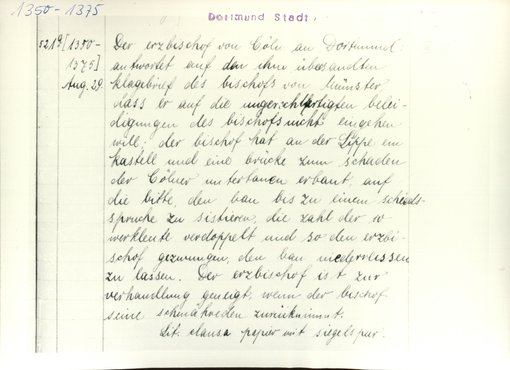 1350-1375
Dortmund Stadt.
521a [1350- Der erzbischof von Cöln an Dortmund
1375] antwortet auf den ihm übersandten
Aug. 29 klagebrief des bischofs von Münster,
dass er auf die ungerechtfertigten belei-
digungen des bischofs nicht eingehen
will; der bischof hat an der Lippe ein
kastell und eine brücke zum schaden
der Cölner untertanen erbaut, auf
die bitte, den bau bis zu einem schieds-
spruche zu sistieren, die zahl der
werkleute verdoppelt und so den erzbi-
schof gezwungen, den bau niederreissen
zu lassen. Der erzbischof ist zur
verhandlung geneigt, wenn der bischof
seine schmähreden zurücknimmt.
Lit. clausa papier mit siegelspur.